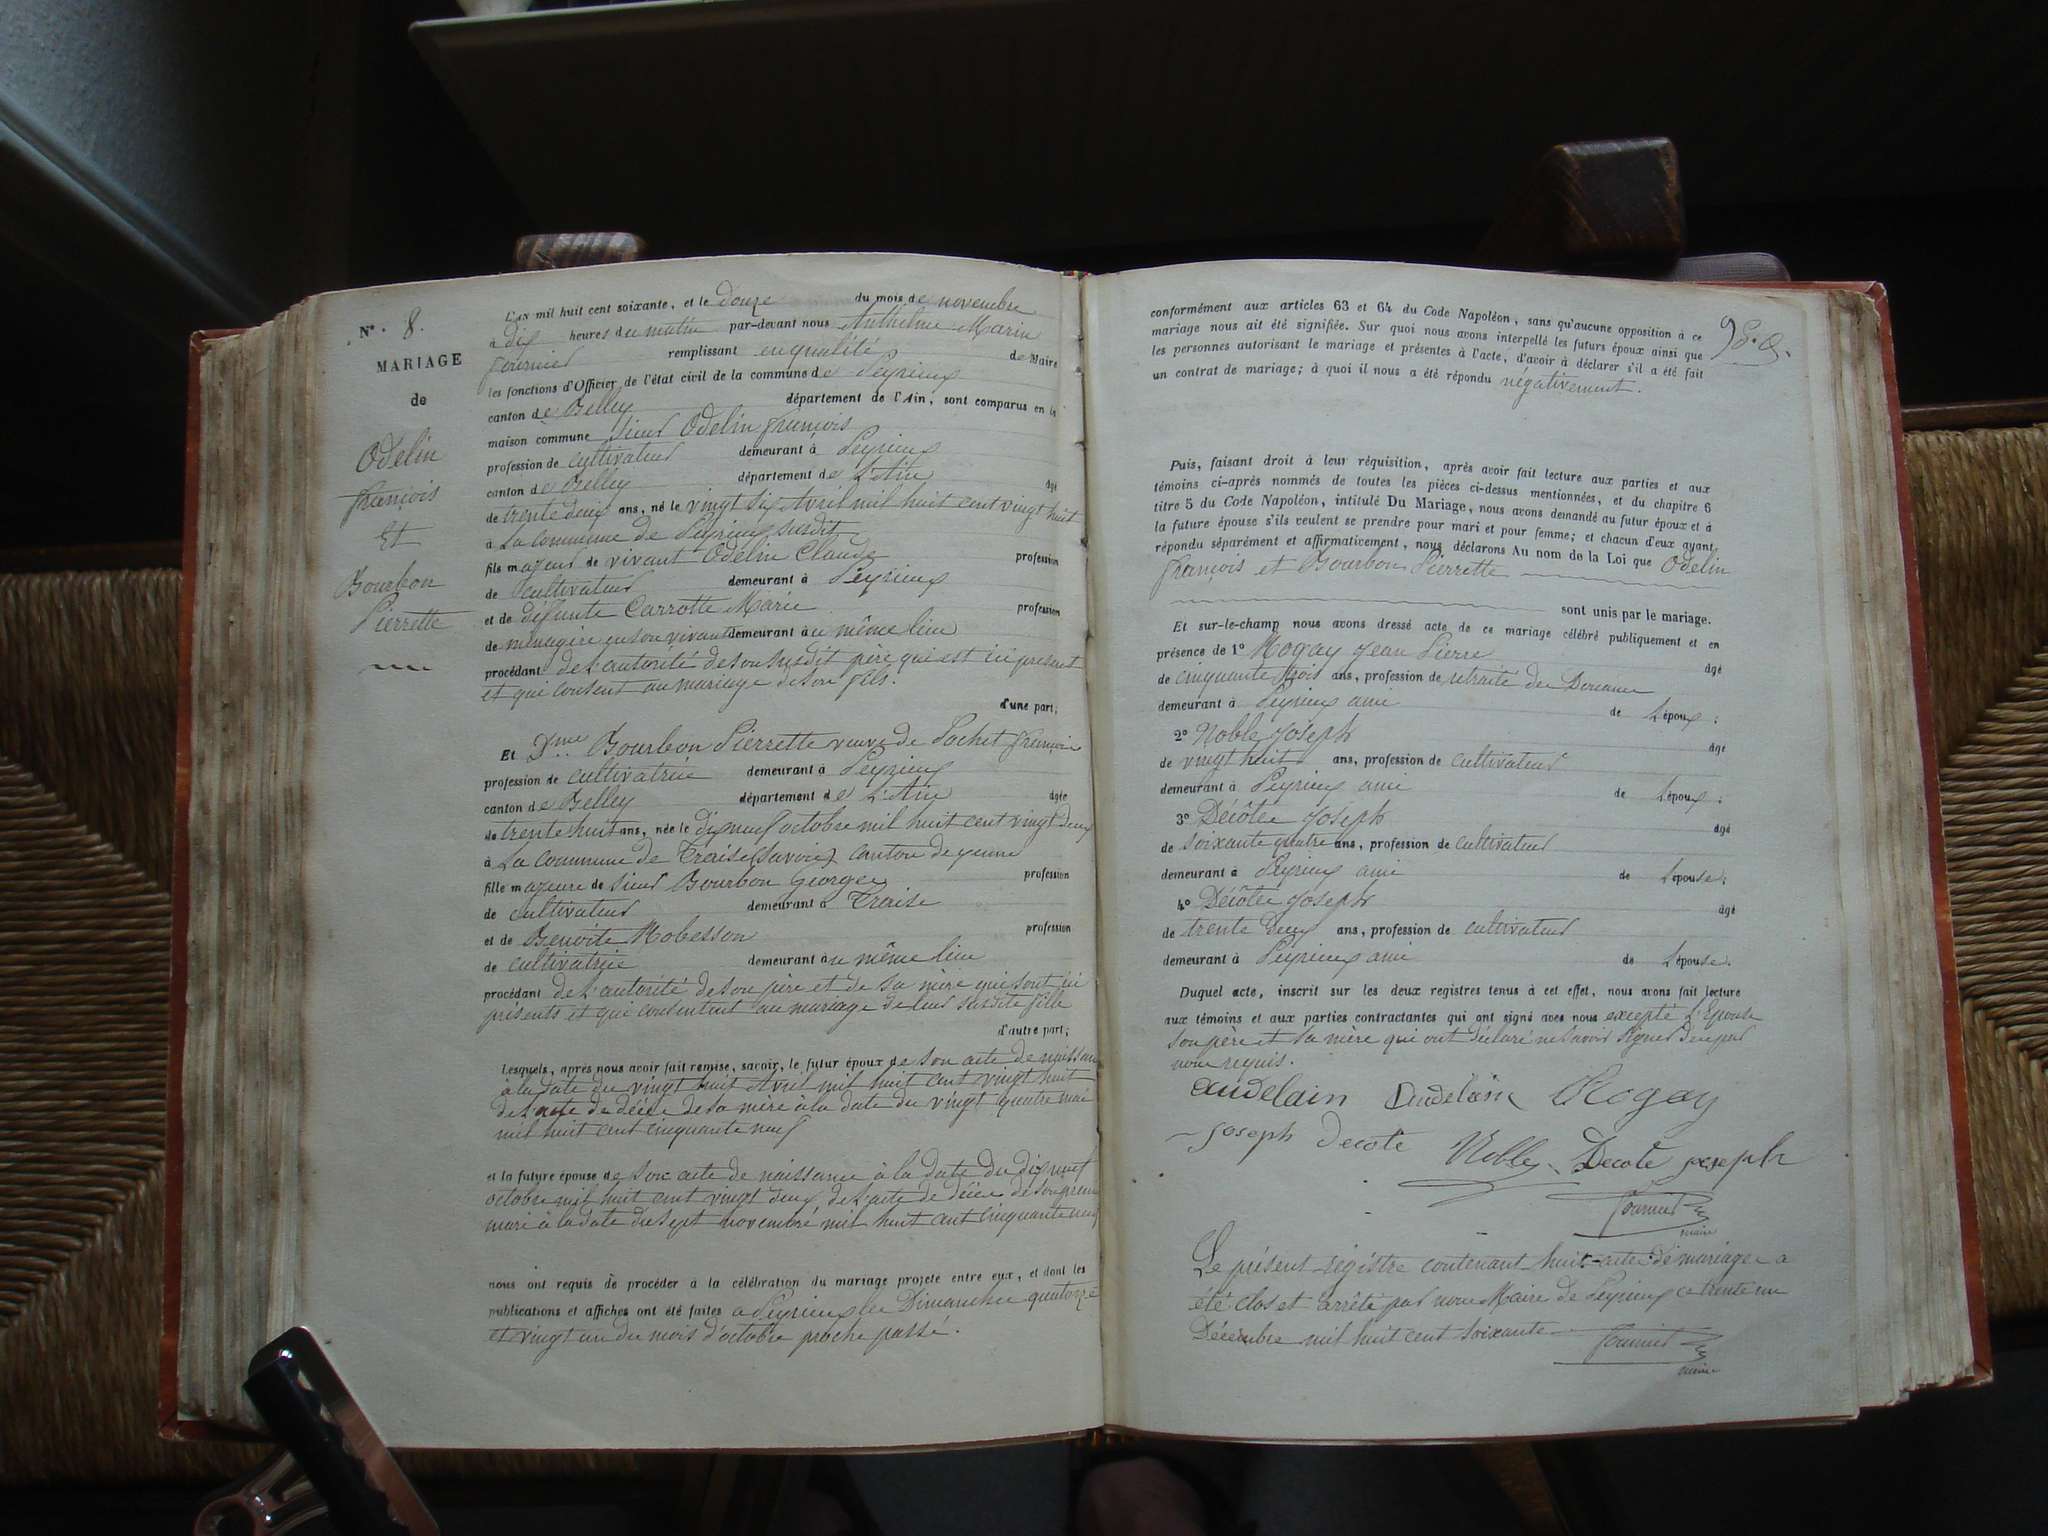 N°. 8.
MARIAGE
de
Odelin
françois
Et
Bourbon
Pierrette
L'AN mil huit cent soixante, et le douze du mois de novembre
à dix heures du matin par-devant nous Anthelme Marin
fournier remplissant en qualité de Maire
les fonctions d'Officier de l'état civil de la commune de Peyrieux
canton de Belley département de l'Ain, sont comparus en la
maison commune Sieur Odelin françois
profession de cultivateur demeurant à Peyrieux
canton de Belley département de L'Ain âgé
de trente deux ans, né le vingt six Avril mil huit cent vingt huit
à La commune de Peyrieux susdit
fils majeur de vivant Odelin Claude profession
de cultivateur demeurant à Peyrieux
et de défunte Carrotte Marie profession
de ménagère en son vivant demeurant au même lieu
procédant de L'autorité de son susdit père qui est ici présent
et qui consent au mariage de son fils.
d'une part;
Et Dme Bourbon Pierrette veuve de Pochet françois
profession de cultivatrice demeurant à Peyrieux
canton de Belley département de L'Ain âgée
de trente huit ans, née le dix neuf octobre mil huit cent vingt deux
à La commune de Traise (Savoie) canton de yenne
fille majeure de Sieur Bourbon George profession
de cultivateur demeurant à Traise
et de Benoite Mobesson profession
de cultivatrice demeurant au même lieu
procédant de L'autorité de son père et de sa mère qui sont ici
présents et qui consentent au mariage de leur susdite fille
d'autre part;
Lesquels, après nous avoir fait remise, savoir, le futur époux de son acte de naissance
à la date du vingt huit Avril mil huit cent vingt huit
de L'acte de décès de sa mère à la date du vingt quatre mai
mil huit cent cinquante neuf
et la future épouse de son acte de naissance à la date du dix neuf
octobre mil huit cent vingt deux de L'acte de décès de son premier
mari à la date du sept novembre mil huit cent cinquante neuf
nous ont requis de procéder à la célébration du mariage projeté entre eux, et dont les
publications et affiches ont été faites à Peyrieux les Dimanches quatorze
et vingt un du mois d'octobre proche passé.
conformément aux articles 63 et 64 du Code Napoléon, sans qu'aucune opposition à ce
mariage nous ait été signifiée. Sur quoi nous avons interpellé les futurs époux ainsi que
les personnes autorisant le mariage et présentes à l'acte, d'avoir à déclarer s'il a été fait
un contrat de mariage; à quoi il nous a été répondu négativement.
Puis, faisant droit à leur réquisition, après avoir fait lecture aux parties et aux
témoins ci-après nommés de toutes les pièces ci-dessus mentionnées, et du chapitre 6
titre 5 du Code Napoléon, intitulé Du Mariage, nous avons demandé au futur époux et à
la future épouse s'ils veulent se prendre pour mari et pour femme; et chacun d'eux ayant
répondu séparément et affirmativement, nous déclarons Au nom de la Loi que Odelin
françois et Bourbon Pierrette
sont unis par le mariage.
Et sur-le-champ nous avons dressé acte de ce mariage célébré publiquement et en
présence de 1° Rogay Jean Pierre âgé
de cinquante trois ans, profession de retraité des Douanes
demeurant à Peyrieux ami de L'époux;
2° Noble Joseph âgé
de vingt huit ans, profession de cultivateur
demeurant à Peyrieux ami de L'époux;
3° Décôte Joseph âgé
de soixante quatre ans, profession de cultivateur
demeurant à Peyrieux ami de L'épouse;
4° Décôte Joseph âgé
de trente deux ans, profession de cultivateur
demeurant à Peyrieux ami de L'épouse.
Duquel acte, inscrit sur les deux registres tenus à cet effet, nous avons fait lecture
aux témoins et aux parties contractantes qui ont signé avec nous excepté L'Epouse
son père et sa mère qui ont déclaré ne savoir signer de ce
requis.
audelain Audelain Rogay
Joseph Decote Noble Decote joseph
fournier
maire
Le présent régistre contenant huit actes de mariage a
été clos et arrêté par nous Maire de Peyrieux ce trente un
Décembre mil huit cent soixante
fournier
maire